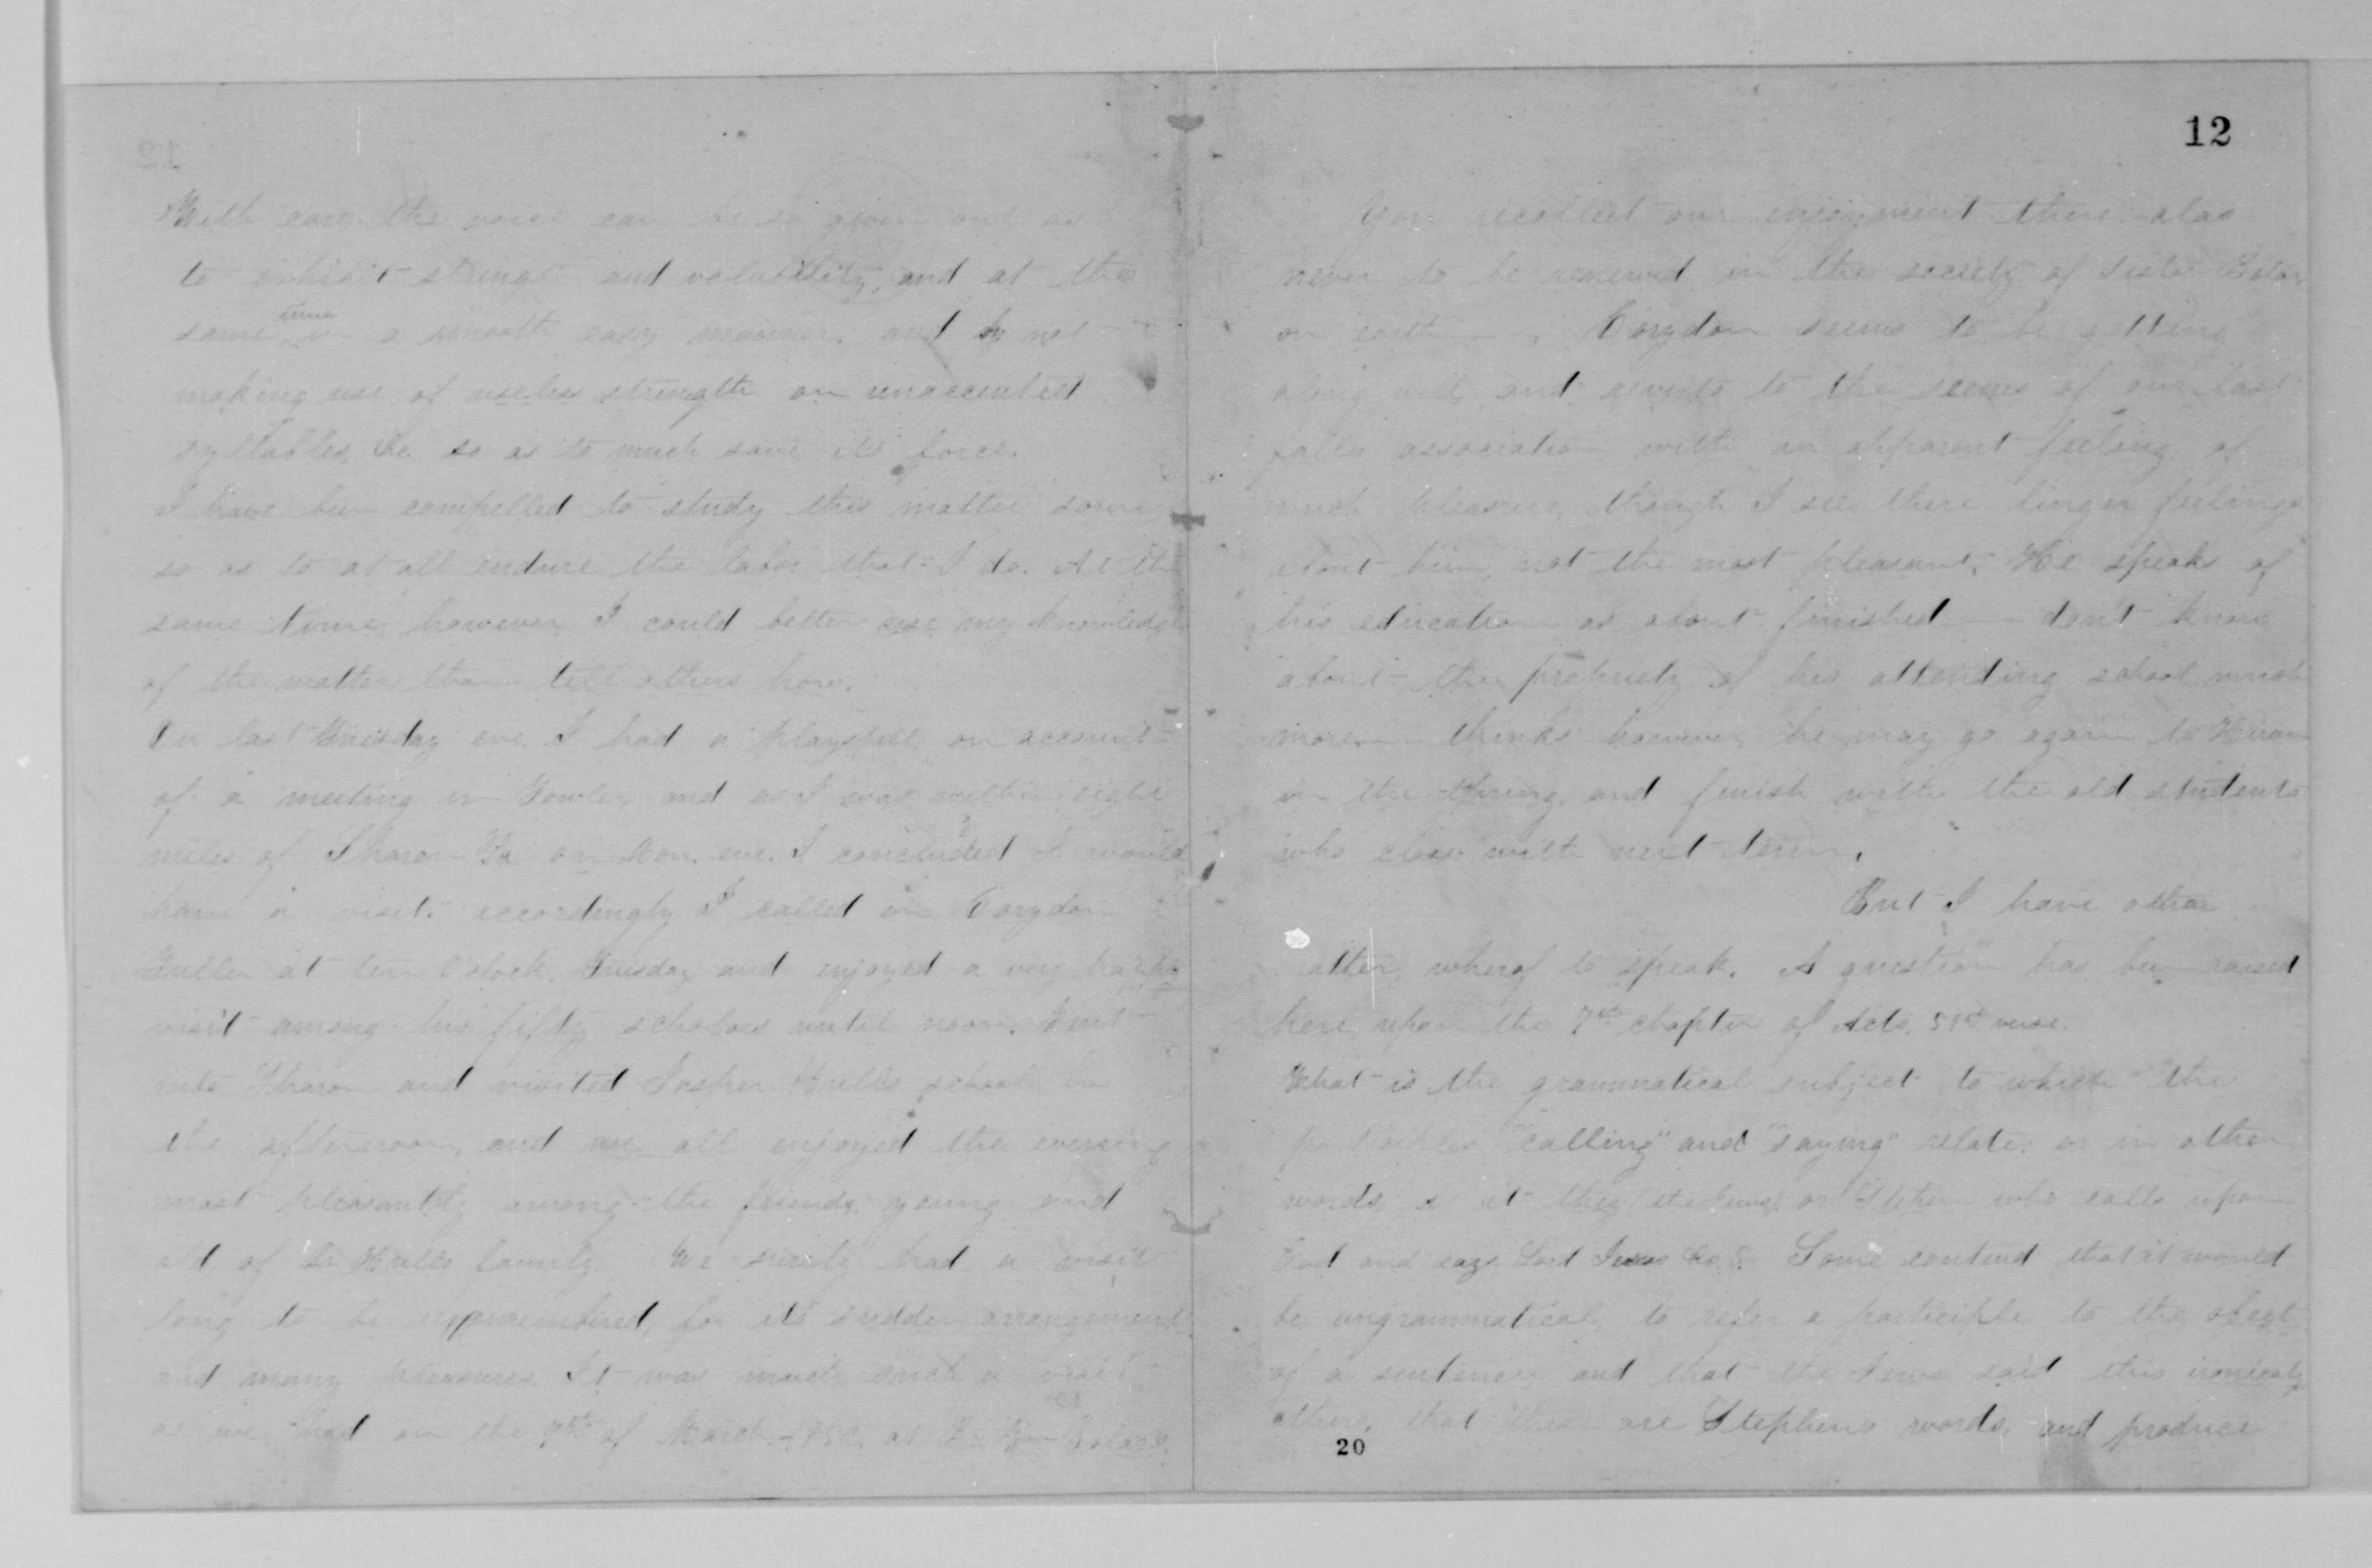 With care the voice can be so given out as
to exhibit strength and volubility, and at the
same time in a smooth easy manner, and by not
making use of useless strength on unaccented
syllables, &c. so as to much save its force.
I have been compelled to study this matter some
so as to at all endure the labor that I do. At the
same time, however, I could better use my knowledge
of the matter than tell others how.
On last Tuesday eve. I had a playspell, on account
of a meeting in Fowler, and as I was within eight
miles of Sharon Pa. on Mon. eve. I concluded I would
have a visit. accordingly I called on Corydon
Fuller at ten O'clock, Tuesday and enjoyed a very happy
visit among his fifty scholars until noon. Went
into Sharon and visited Jasper Hull's school in
the afternoon, and we all enjoyed the evening
most pleasantly among the friends, young and
old of Hull's family. We surely had a visit
long to be remembered, for its sudden arrangement
and many pleasures. It was much such a visit
as we had on the 7th of March at
12
You recollect our enjoyment there—alas—
never to be renewed in the society of Sister
on earth. Corydon seems to be getting
along well, and reverts to the scenes of our last
fall's association with an apparent feeling of
much pleasure, though I see there linger feelings
about him, not the most pleasant. He speaks of
his education as about finished — don't know
about the propriety of his attending school much
more — thinks however, he may go again to Hiram
in the Spring, and finish with the old students
who close with next term.
But I have other
matter, wherof to speak. A question has been raised
here, upon the 7th chapter of Acts, 59th verse.
What is the grammatical subject to which the
participles "calling" and "saying" relate, or in other
words, is it they (the Jews), or Stephen who calls upon
God and says Lord Jesus &c.? Some contend that it would
be ungrammatical, to refer a participle to the object
of a sentence, and that the Jews said this ironically
others, that these are Stephens words, and produce
20